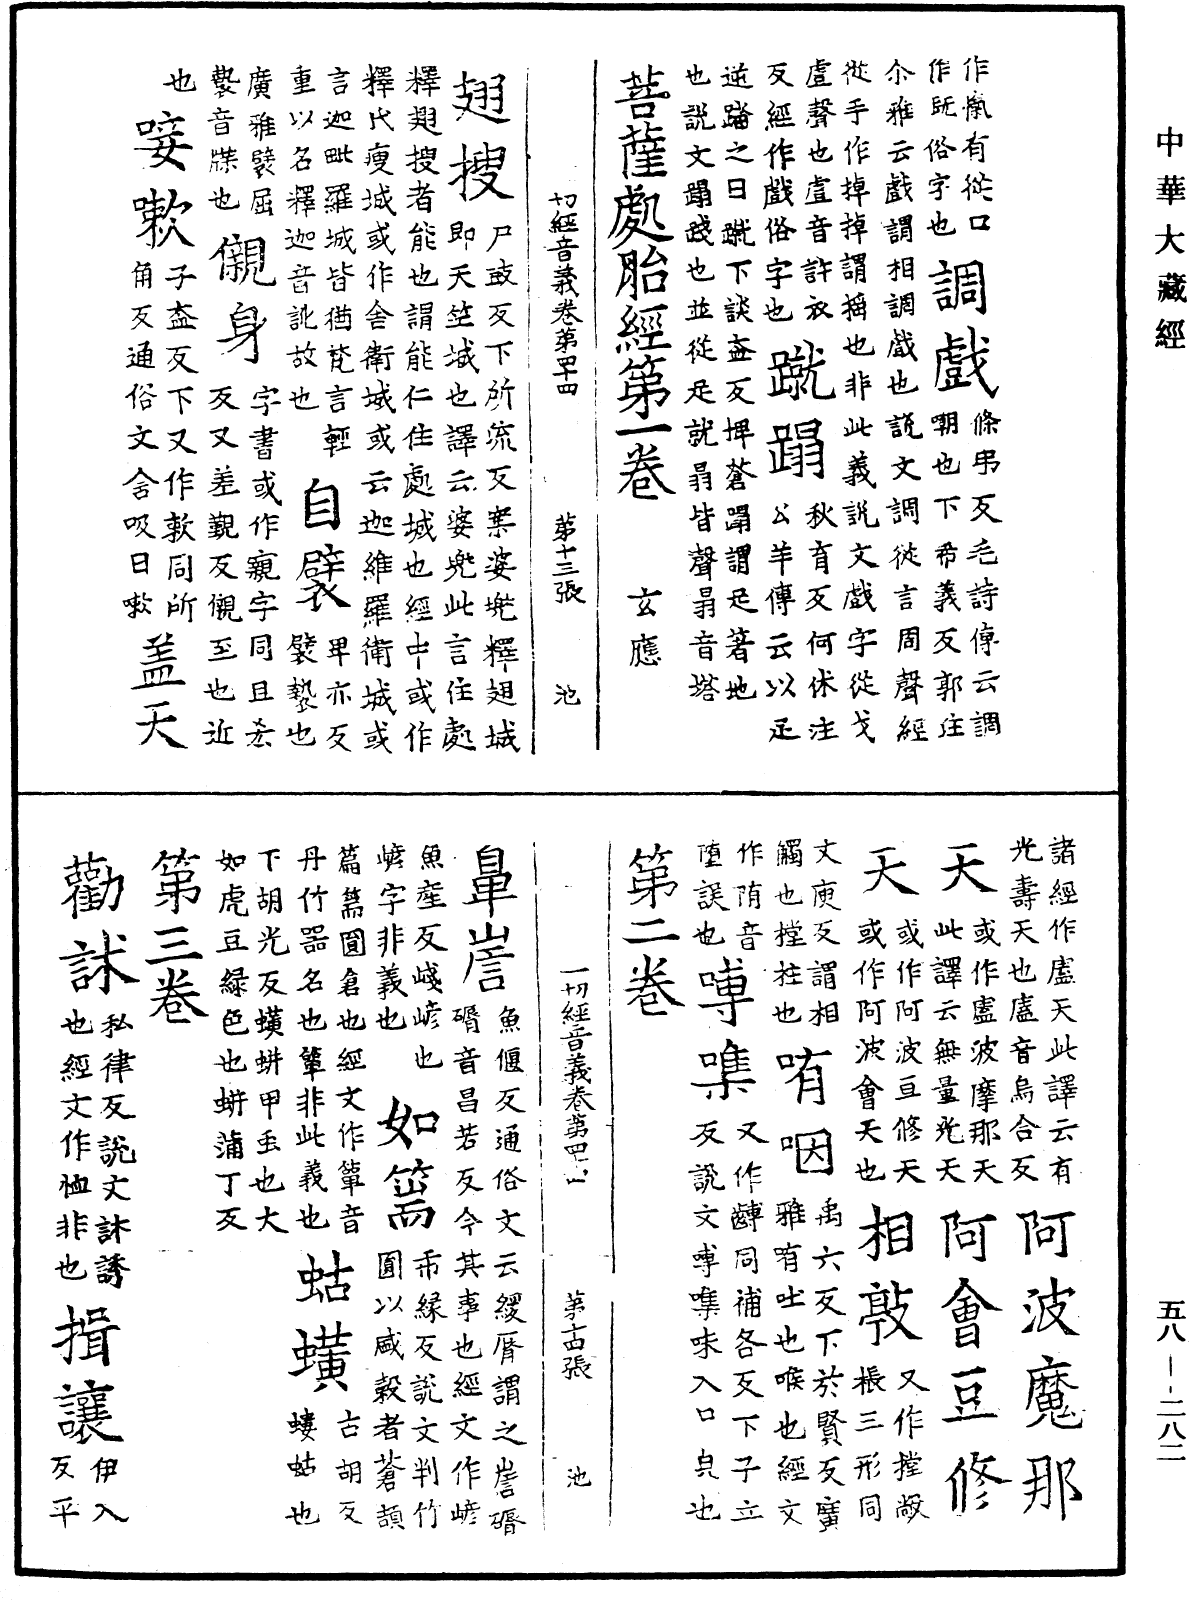 中華大藏經
作㡢有從口
作既俗字也
調戲
條弔反毛詩傳云調
嘲也下希義反郭注
尒雅云戲謂相調戲也說文調從言周聲經
從手作掉掉謂搖也非此義說文戲字從戈
䖒聲也䖒音許衣反經作戲俗字也
蹴蹋
秋育反何休注
公羊傳云以足
逆蹹之曰蹴下談盍反埤蒼蹋謂足著地
也說文蹋踐也並從足就㬱皆聲㬱音塔
菩薩處胎經第一卷　玄應
切經音義卷第四十四　第十三張　池
翅搜
尸豉反下所流反案婆兜釋翅城
即天竺城也譯云婆兜此言住處
釋翅搜者能也謂能仁住處城也經中或作
釋氏瘦城或作舍衛城或云迦維羅衛城或
言迦毗羅城皆猶梵言輕
重以名釋迦音訛故也
自襞
卑亦反
襞褺也
廣雅襞屈
褺音牒也
儭身
字書或作寴字同且吝
反又差覲反儭至也近
也
唼嗽
子盍反下又作欶同所
角反通俗文含吸曰嗽
蓋天
諸經作盧天此譯云有
光壽天也盧音烏合反
阿波魔那
天
或作盧波摩那天
此譯云無量光天
阿會豆修
天
或作阿波亘修天
或作阿波會天也
相敦
又作摚敞
棖三形同
丈庚反謂相
觸也摚拄也
哊咽
禹六反下於賢反廣
雅哊吐也喉也經文
作陏音
墮誤也
噂㗱
又作𪙍同補各反下子立
反說文噂㗱味入口皃也
第二卷
一切經音義卷第四十四　第十四張　池
鼻𡹔
魚偃反通俗文云緩脣謂之𡹔磭
磭音昌若反今其事也經文作巘
魚產反嵼巘也
巘字非義也
如篅
市緣反說文判竹
圓以盛穀者蒼頡
篇篅圓倉也經文作簞音
丹竹器名也簞非此義也
蛄蟥
古胡反
螻蛄也
下胡光反蟥蛢甲虫也大
如虎豆綠色也蛢蒲丁反
第三卷
勸訹
私律反說文訹誘
也經文作恤非也
揖讓
伊入
反平
五八—二八二